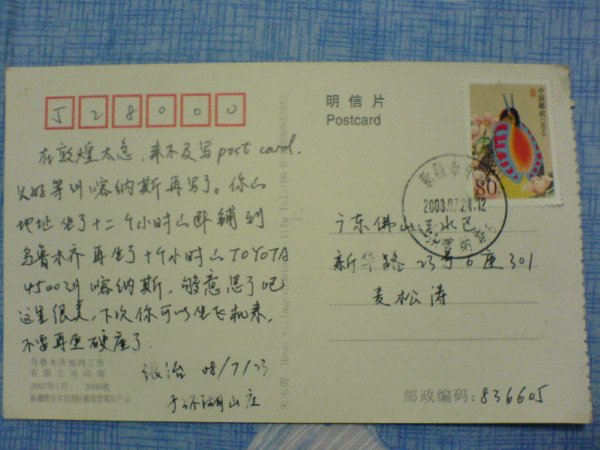 528000
明信片
Postcard
中国邮政 CHINA
80
2008.07.24.12
在敦煌太急,来不及写post card.
只好等到喀纳斯再写了。你山
地址坐了十二个小时山卧铺到
乌鲁木齐再坐了十个小时山TOYOTA
4500到喀纳斯,够意思了吧
这里很美,下次你可以坐飞机来,
不要再坐硬座了.
08/7/23
于环湖山庄
广东佛山三水区
新华路23号6座301
麦松涛
乌鲁木齐旭鸿工贸
有限公司印制
2007年1月 3000枚
邮政编码:836605